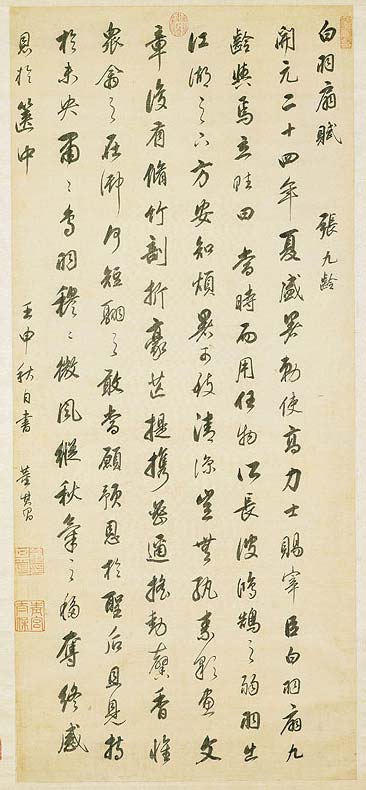 白羽扇賦 張九齡
開元二十四年夏盛暑勅使高力士賜宰臣白羽扇九
齡與焉立賦曰當時而用任物所長彼鴻鵠之弱羽出
江湖之下方安知煩暑可致清涼豈無紈素彩畫文
章復有脩竹剖析豪芒提攜密邇搖動馨香惟
衆禽之在御何短翮之敢當顧預恩於聖后且見持
於未央肅〻白羽穆〻微風縱秋氣之移奪終感
恩於篋中 壬申秋日書 董其昌